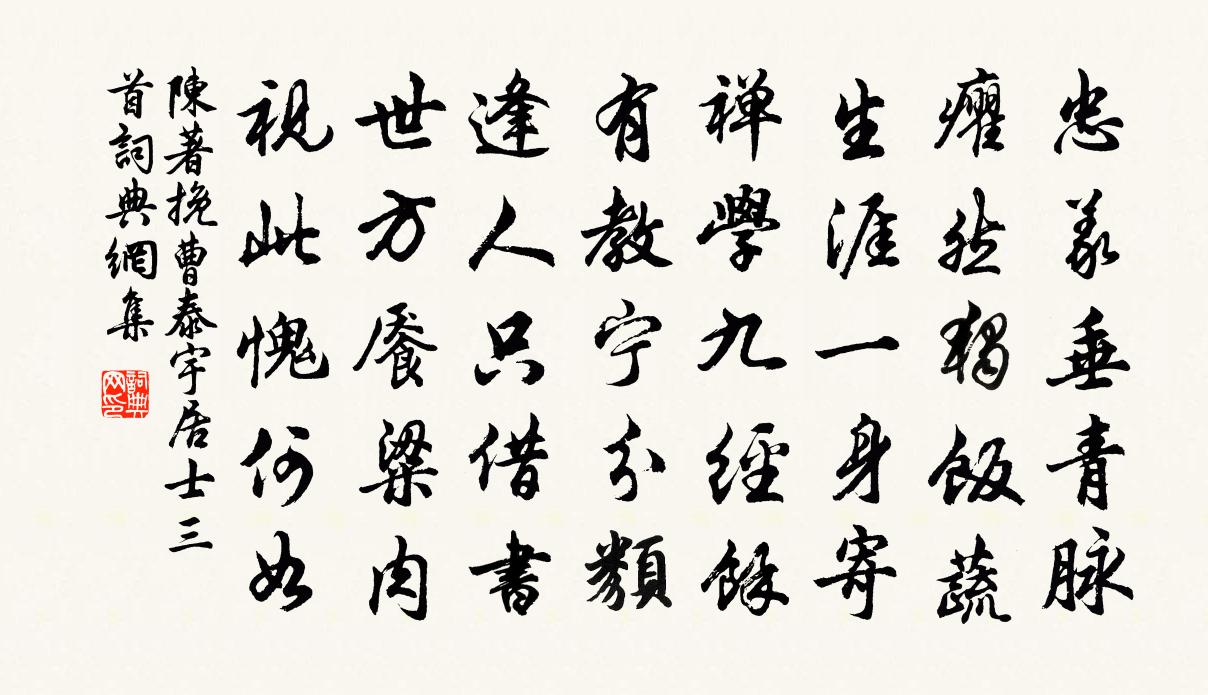 忠義垂青脉
癯然獨飯蔬
生涯一身寄
禅學九經餘
有教宁分類
逢人只借書
世方饜粱肉
視此愧何如
陳著挽曹泰宇居士三
首詞典網集
詞典
网印